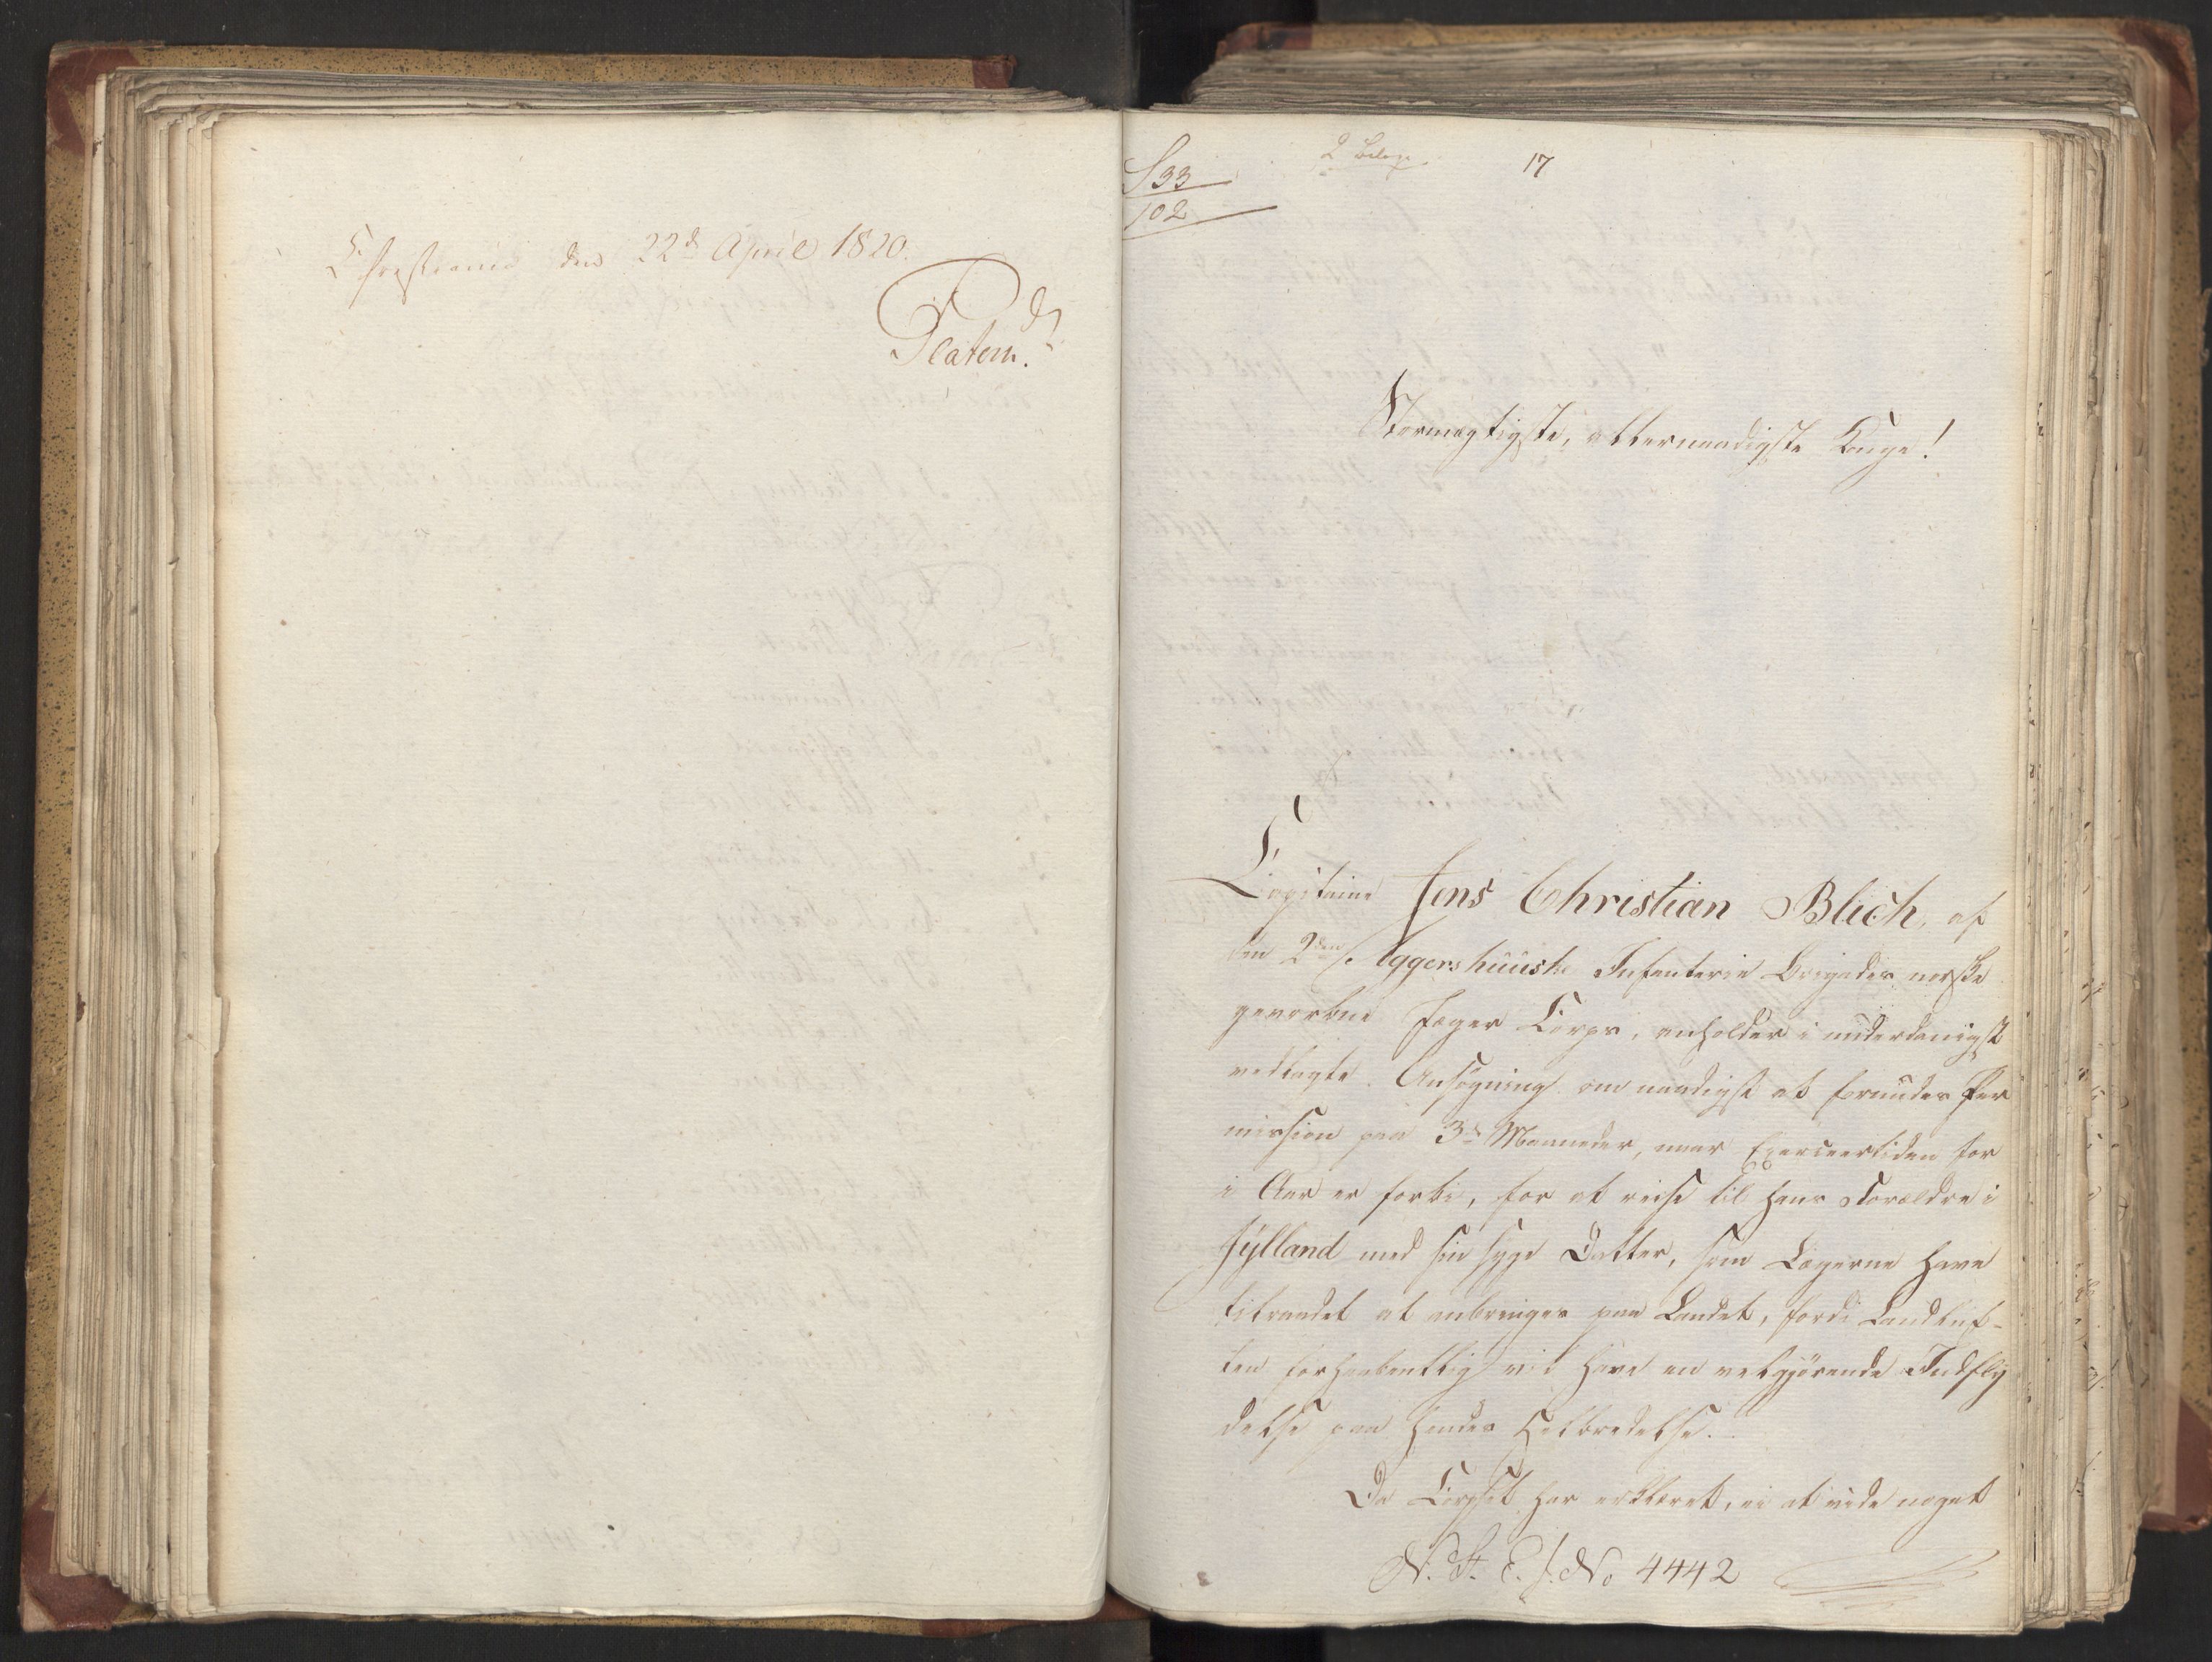 Christiania den 22d April 1820.
Platou.
S 33
102
2 Bilag
17
Stormægtigste, allernaadigste Konge!
Capitaine Jens Christian Blich, af
den 2den Aggershuuske Infanterie Brigades norske
gevorbne Jæger Corps, anholder i underdanigst
vedlagte Ansøgning om naadigst at forundes Per
mission paa 3de Maaneder, naar Exerceertiden for
i Aar er forbi, for at reise til hans Forældre i
Jylland med sin syge Datter, som Lægerne have
tilraadet at anbringes paa Landet, fordi Landluf-
ten forhaabentlig vil have en velgjørende Indfly
delse paa hendes Helbredelse.
Da Corpset har erklæret, ei at vide noget
N. St. E. J. No 4442